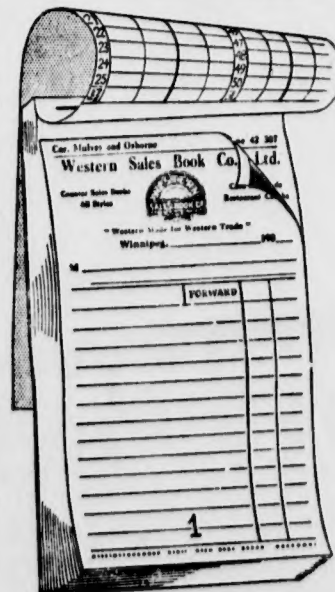 22
23
24
25
49
50
Cor. Mulvey and Osborne 42 307
Western Sales Book Co., Ltd.
Counter Sales Books
All Styles
Restaurant
"Western Made for Western Trade"
Winnipeg, 190
M
FORWARD
1